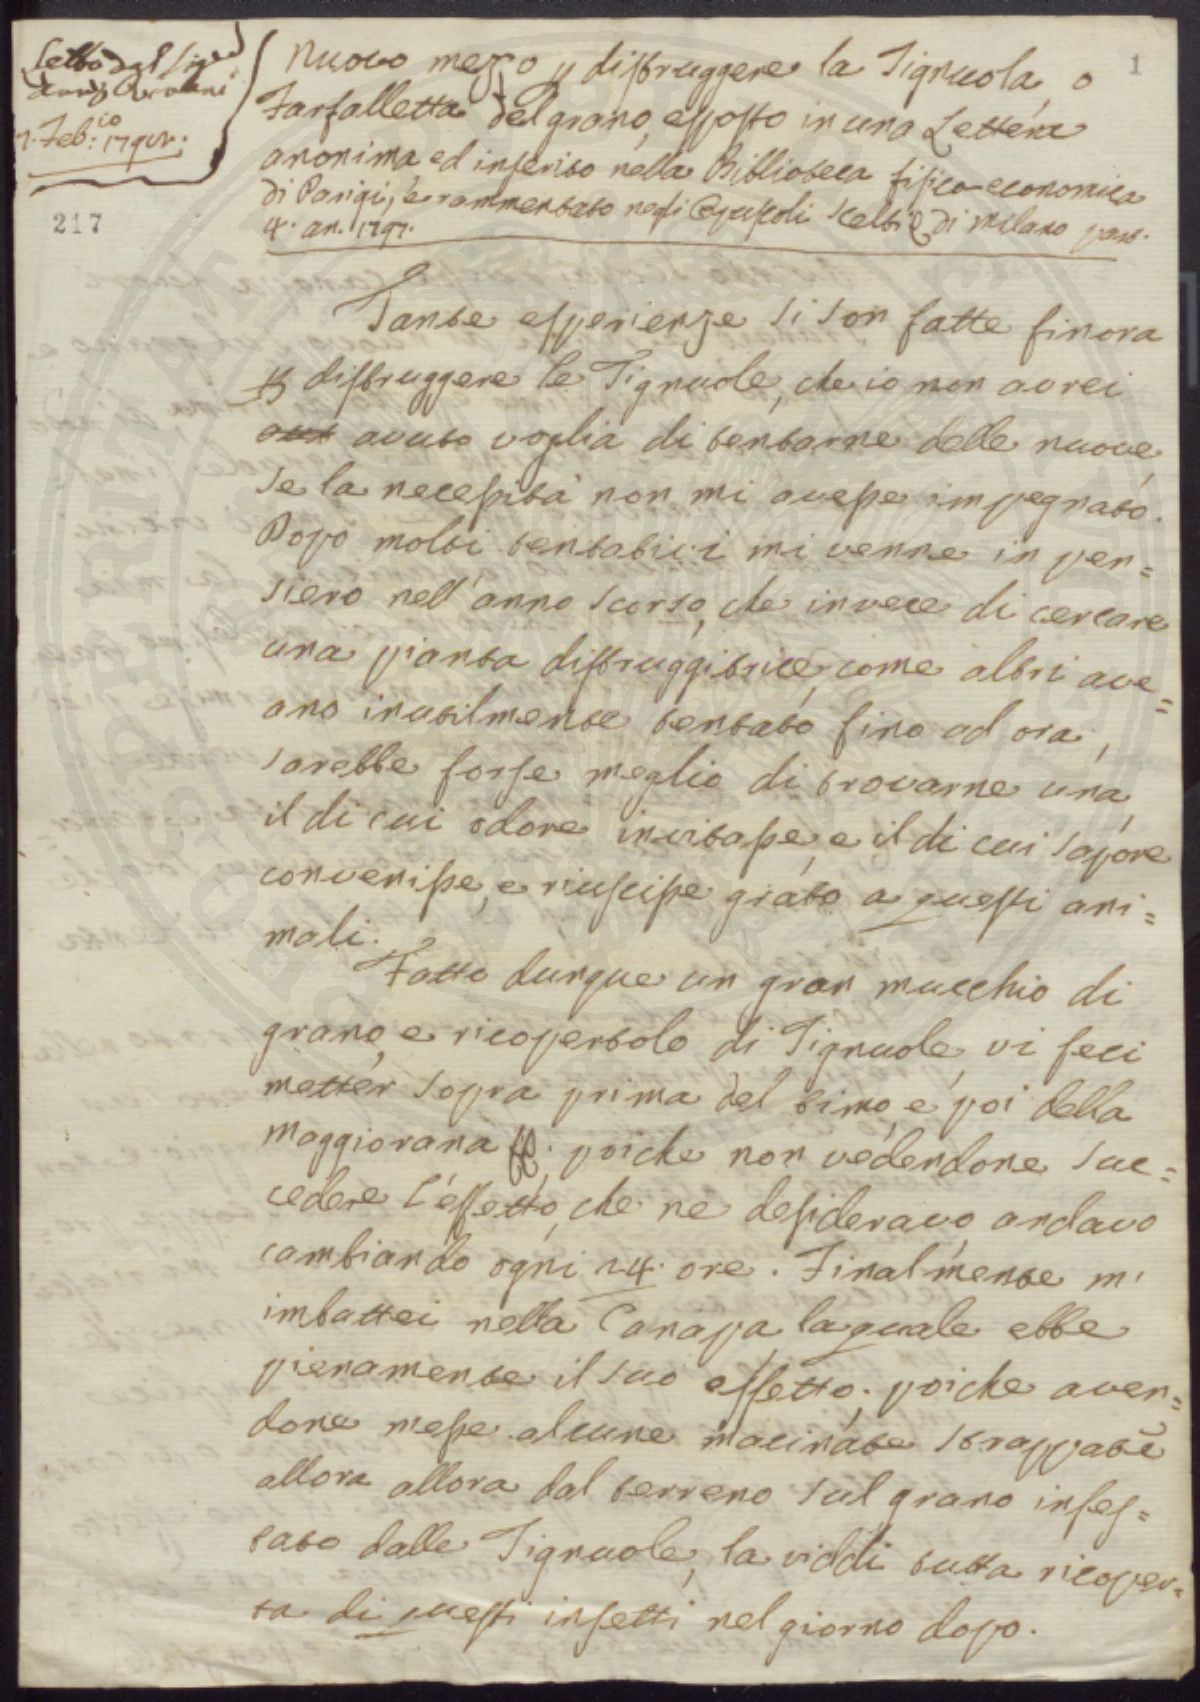 Letto dal Sig.r
7. Feb.io 1792.
217
1
Nuovo mezzo p distruggere la Tignuola, o
Farfalletta del grano, esposto in una Lettera
anonima ed inserito nella Biblioteca fisico-economica
di Parigi, è rammentato negli Opuscoli scelti di Milano par.
4. an. 1791.
Tante esperienze si son fatte finora
p distruggere le Tignuole, che io non avrei
avuto voglia di tentarne delle nuove,
se la necessità non mi avesse impegnato.
Dopo molti tentativi mi venne in pen=
siero nell'anno scorso, che invece di cercare
una pianta distruggitrice, come altri ave=
ano inutilmente tentato fino ad ora,
sarebbe forse meglio di trovarne una,
il di cui odore invitasse, e il di cui sapore
convenisse, e riuscisse grato a questi ani=
mali.
Fatto dunque un gran mucchio di
grano, e ricopertolo di Tignuole, vi feci
metter sopra prima del timo, e poi della
maggiorana &c: poiche non vedendone suc=
cedere l'effetto, che ne desideravo, andavo
cambiando ogni 24. ore. Finalmente m'
imbattei nella Canapa la quale ebbe
pienamente il suo effetto; poiche aven=
done messe alcune macinate strappate
allora allora dal terreno sul grano infes=
tato dalle Tignuole, la viddi tutta ricoper=
ta di questi insetti nel giorno dopo.